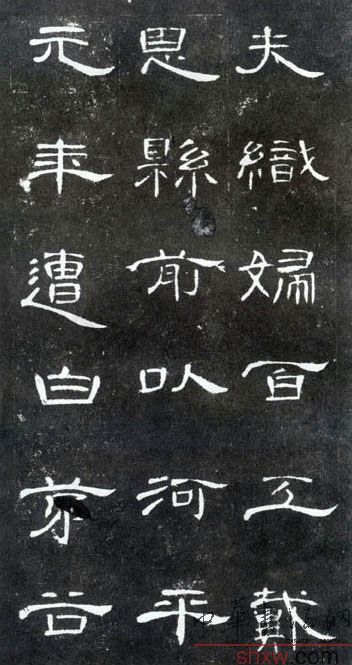 夫織婦百工戴
恩縣前以河平
元年遭白茅谷
shxw.com